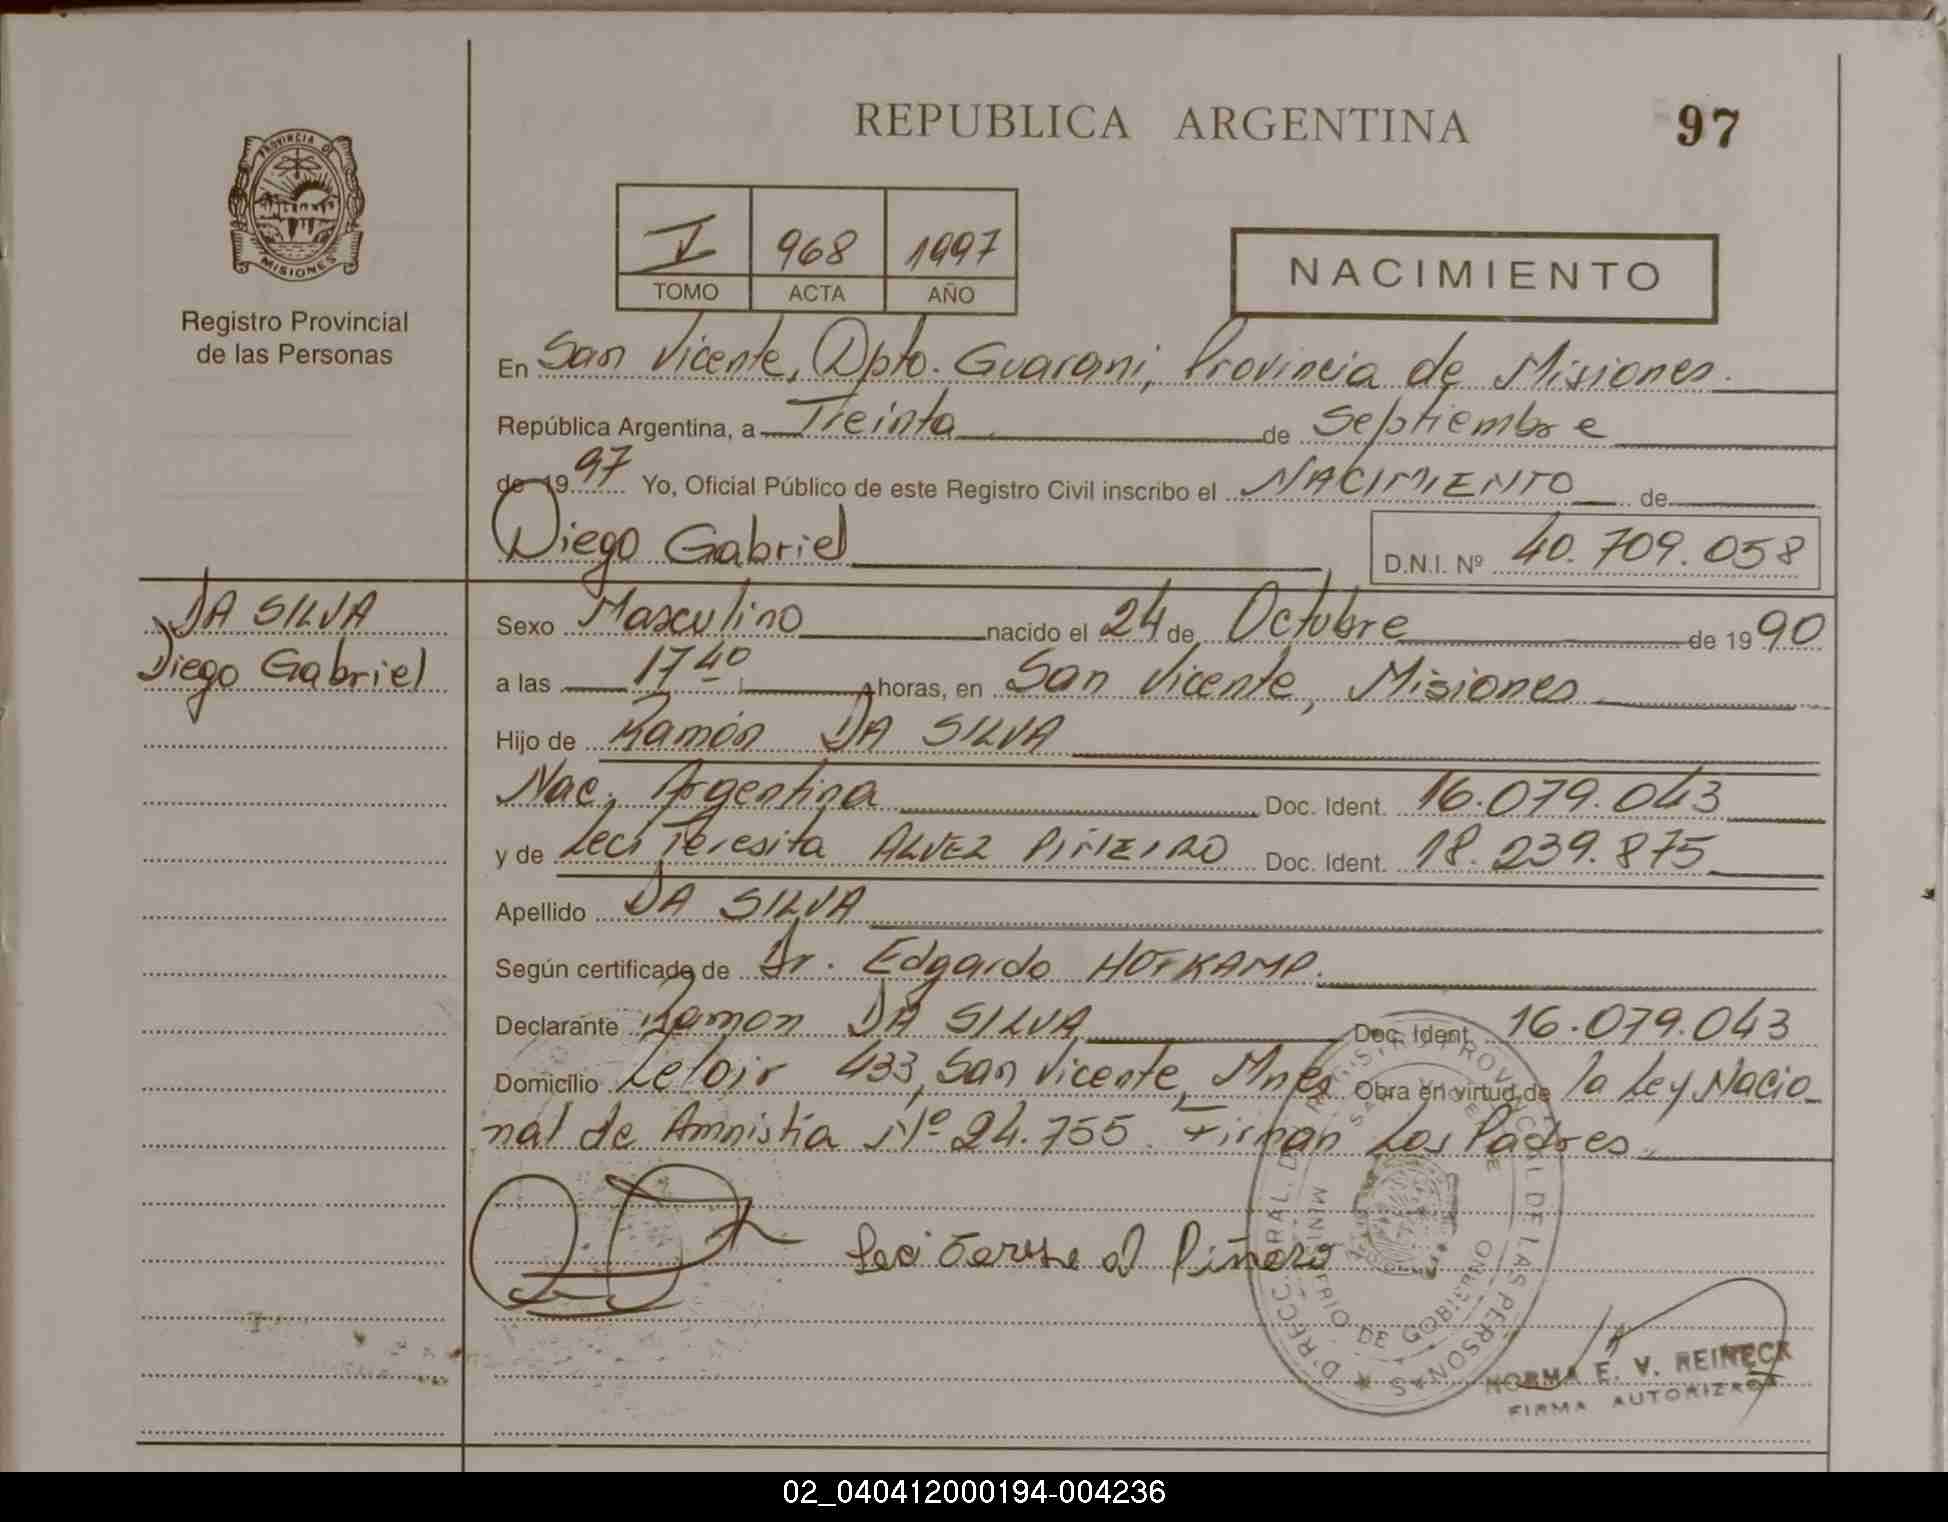 REPUBLICA ARGENTINA
97
PROVINCIA DE
MISIONES
Registro Provincial
de las Personas
I 968 1997
TOMO ACTA AÑO
NACIMIENTO
En San Vicente, Dpto. Guarani, Provincia de Misiones.
República Argentina, a Treinta de Septiembre
de 1997 Yo, Oficial Público de este Registro Civil inscribo el NACIMIENTO de
Diego Gabriel D.N.I. Nº 40.709.058
DA SILVA
Diego Gabriel
Sexo Masculino nacido el 24 de Octubre de 1990
a las 17 40 horas, en San Vicente, Misiones
Hijo de Ramón DA SILVA
Nac. Argentina Doc. Ident. 16.079.043
y de Leci Teresita ALVEZ PIÑEIRO Doc. Ident. 18.239.875
Apellido DA SILVA
Según certificado de Dr. Edgardo HOFKAMP.
Declarante Ramon DA SILVA Doc. Ident. 16.079.043
Domicilio Leloir 433, San Vicente, Mnes Obra en virtud de la Ley Nacio_
nal de Amnistia Nº 24.755. Firman Los Padres.
Leci
NORMA E. V. REINECK
FIRMA AUTORIZADA
MINISTERIO DE GOBIERNO
02_040412000194-004236